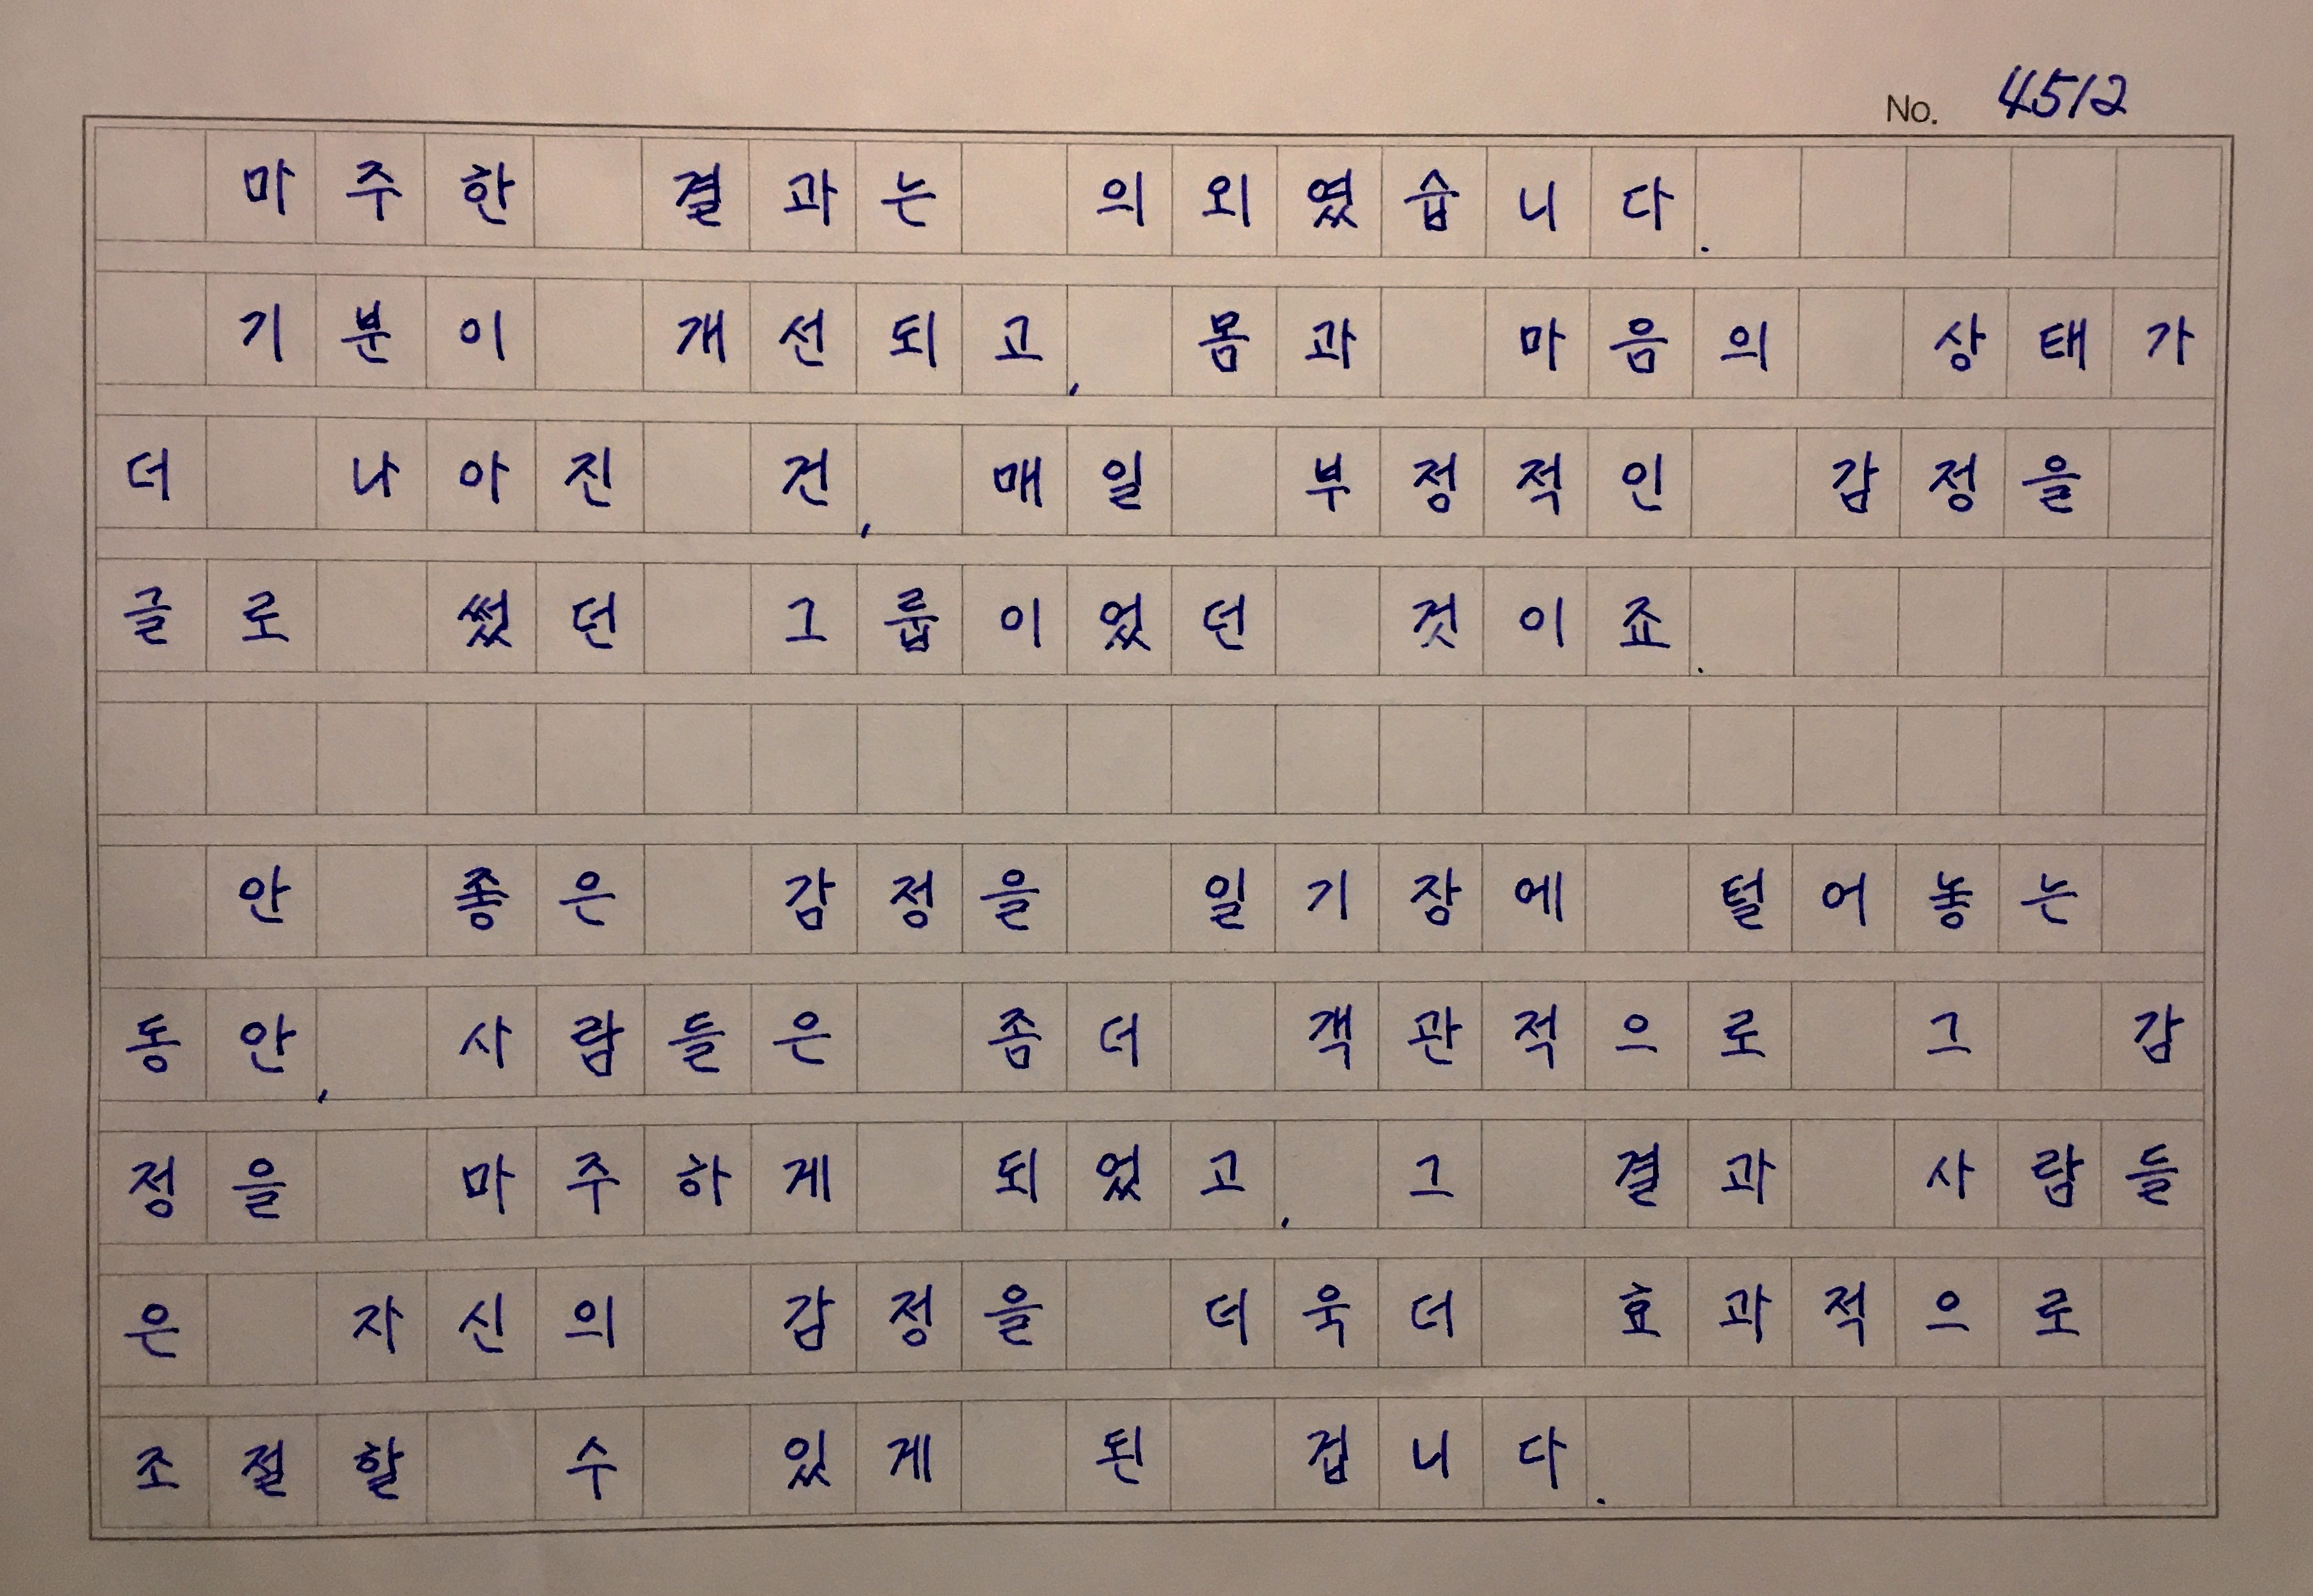 No. 4512
마주한 결과는 의외였습니다.
기분이 개선되고, 몸과 마음의 상태가
더 나아진 건, 매일 부정적인 감정을
글로 썼던 그룹이었던 것이죠.
안 좋은 감정을 일기장에 털어놓는
동안, 사람들은 좀더 객관적으로 그 감
정을 마주하게 되었고, 그 결과 사람들
은 자신의 감정을 더욱더 효과적으로
조절할 수 있게 된 겁니다.